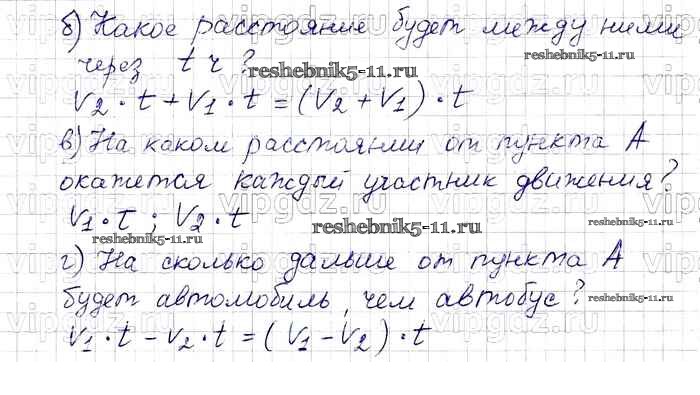 б) Какое расстояние будет между ними
через t ч?
reshebnik5-11.ru
V₂ · t + V₁ · t = (V₂ + V₁) · t
в) На каком расстоянии от пункта А
окажется каждый участник движения?
V₁ · t ; V₂ · t
reshebnik5-11.ru
reshebnik5-11.ru
reshebnik5-11.ru
г) На сколько дальше от пункта А
будет автомобиль, чем автобус?
reshebnik5-11.ru
V₁ · t – V₂ · t = (V₁ – V₂) · t
reshebnik5-11.ru